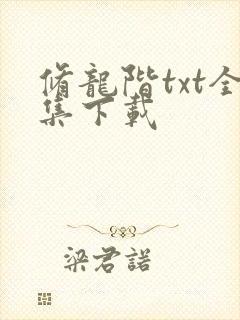 脩龍階txt全
集下載
梁君諾